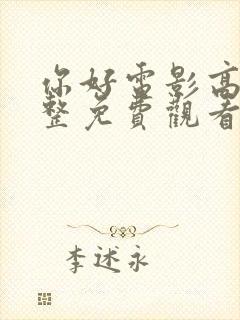 你好雷影高
整免費觀看
李述永